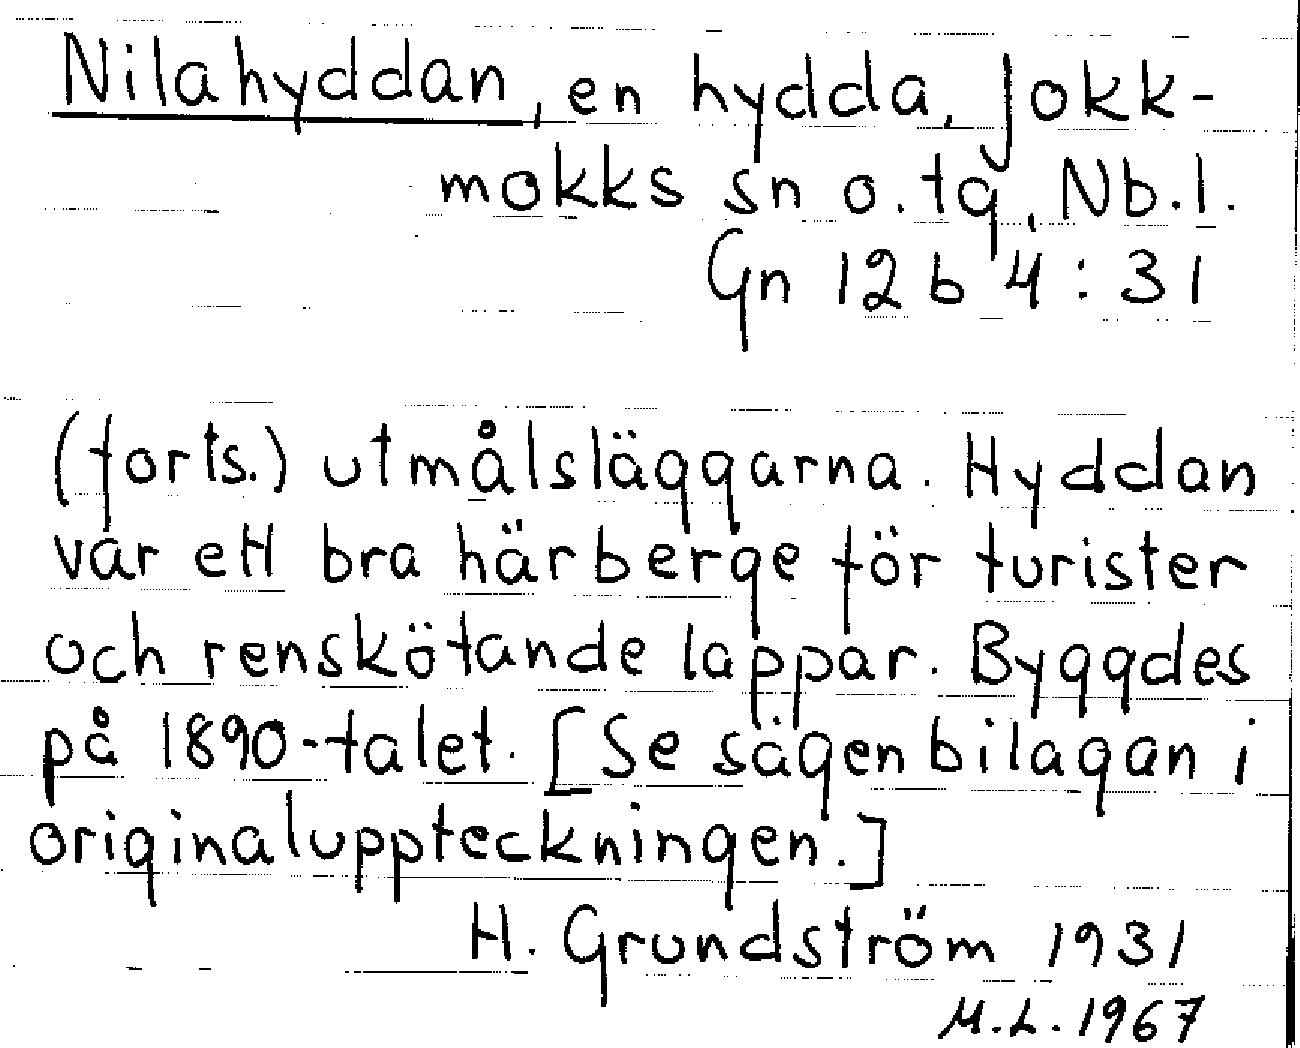 Nilahyddan, en hydda, Jokk-
mokks sn o. tg, Nb.l.
Gn 12 b 4 : 31
(forts.) utmålsläggarna. Hyddan
var ett bra härberge för turister
och renskötande lappar. Byggdes
på 1890-talet. [Se sägenbilagan i
originaluppteckningen.]
H. Grundström 1931
M.L. 1967